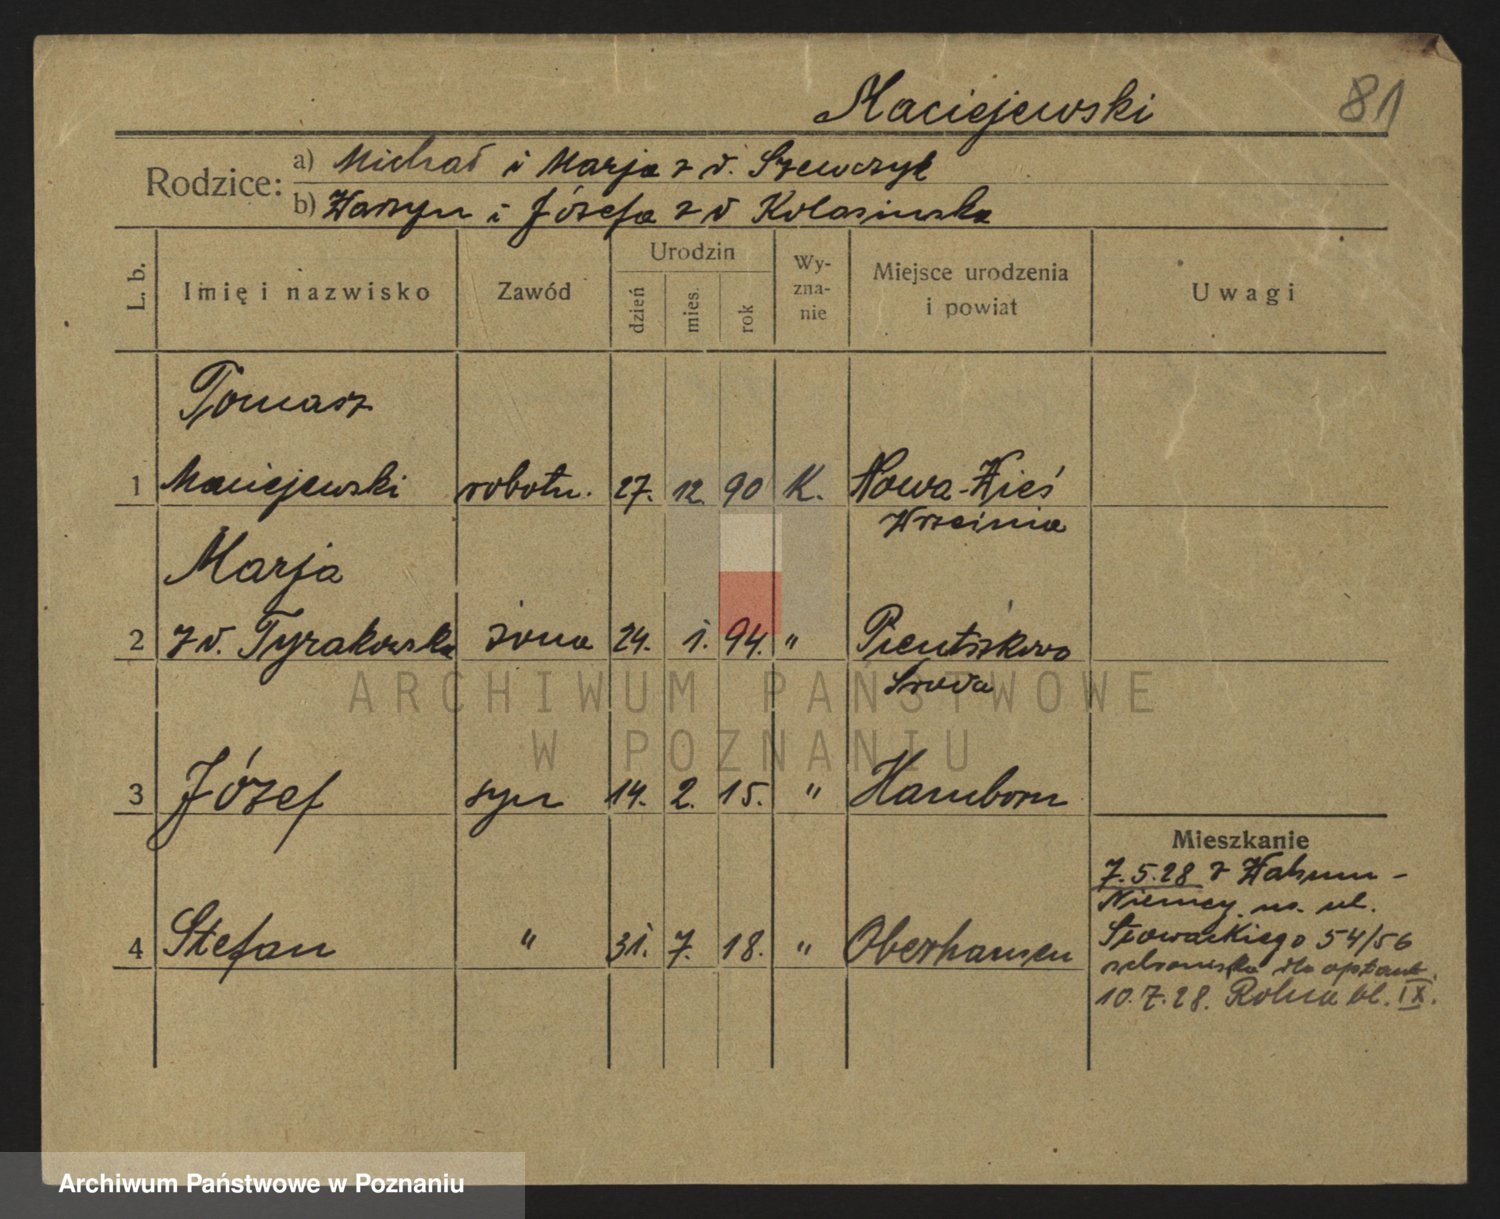 Maciejewski
81
Rodzice: a) Michał i Marja z d. Szewczyk
b) Wawrzyn i Józefa z d Kolasinska
L. b.
Imię i nazwisko
Zawód
Urodzin
dzień
mies.
rok
Wy-
zna-
nie
Miejsce urodzenia
i powiat
Uwagi
Tomasz
1 Maciejewski robotn. 27. 12. 90 K. Nowa-Wieś
Września
Marja
2 z d. Tyrakowska żona 24. 1. 94. "
Środa
3 Józef syn 14. 2. 15. " Hamborn
Mieszkanie
7.5.28 z
Niemcy na ul.
4 Stefan " 31. 7. 18. " Oberhausen
Słowackiego 54/56
schroniska dla optant.
10.7.28. Rolna bl. IX.
ARCHIWUM PAŃSTWOWE
W POZNANIU
Archiwum Państwowe w Poznaniu